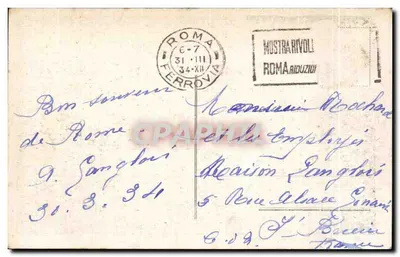 ROMA
6-7
31 III
34-XII
FERROVIA
MOSTRA RIVOLI
ROMA RIDUZIONI
Bon souvenir
de Rome
A. Langlois
30.3.34
Monsieur
et les Employés
Maison Langlois
5 Rue Alsace Lorraine
St Brieuc
C.d.N.
France